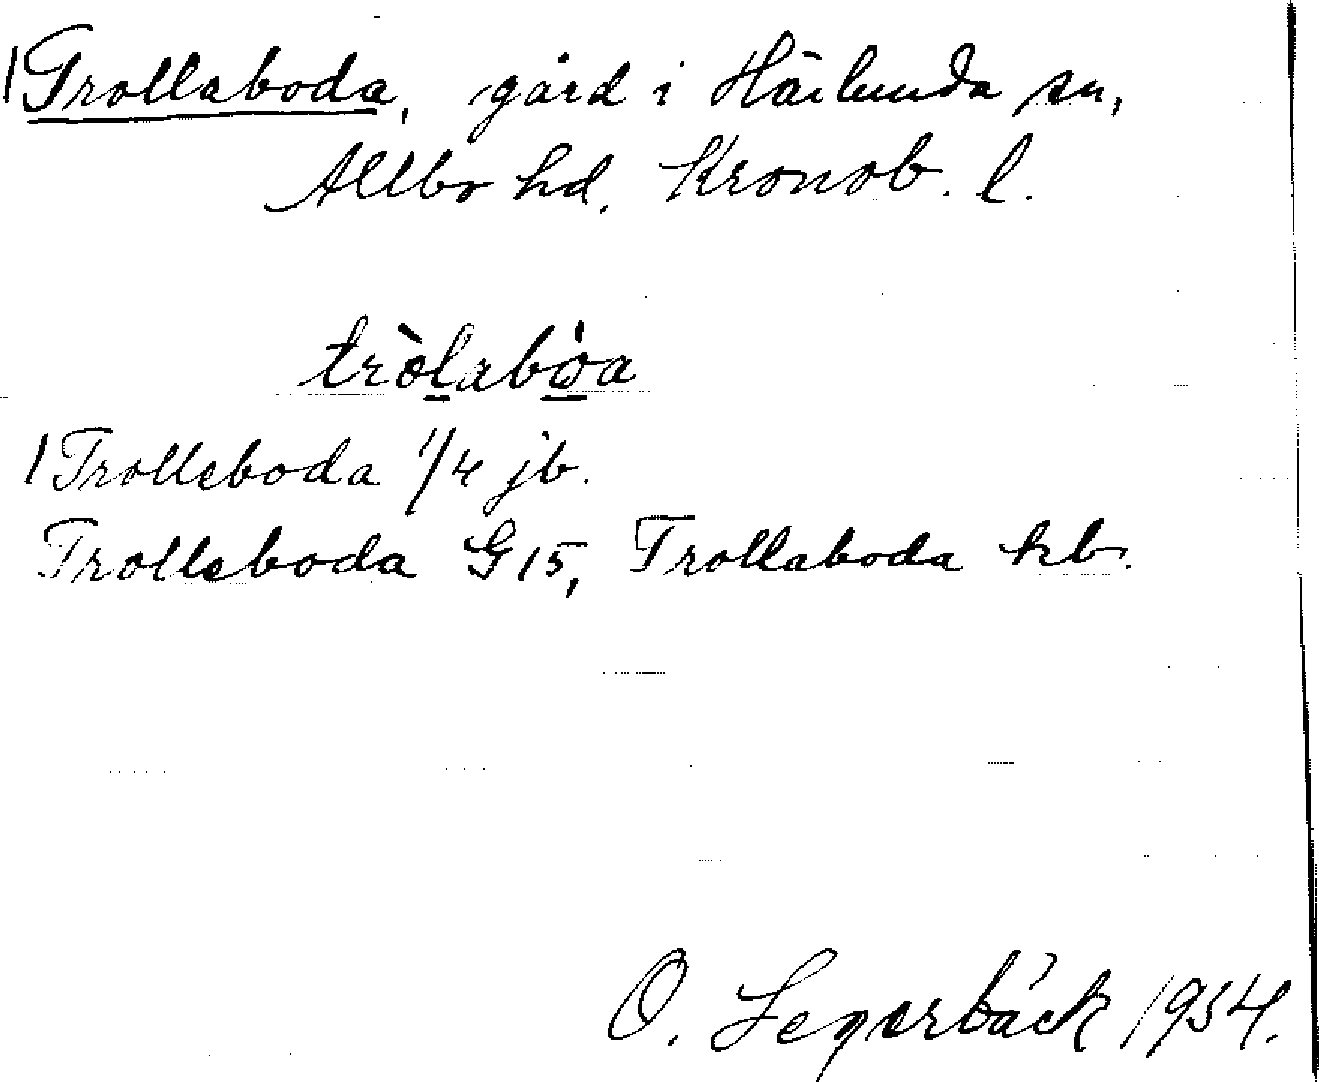 Trollaboda, gård i Härlunda sn,
Allbo hd. Kronob. l.
tròlabo̊a
Trolleboda 1/4 jb.
Trolleboda G15, Trollaboda kb.
O. Legerbäck 1954.